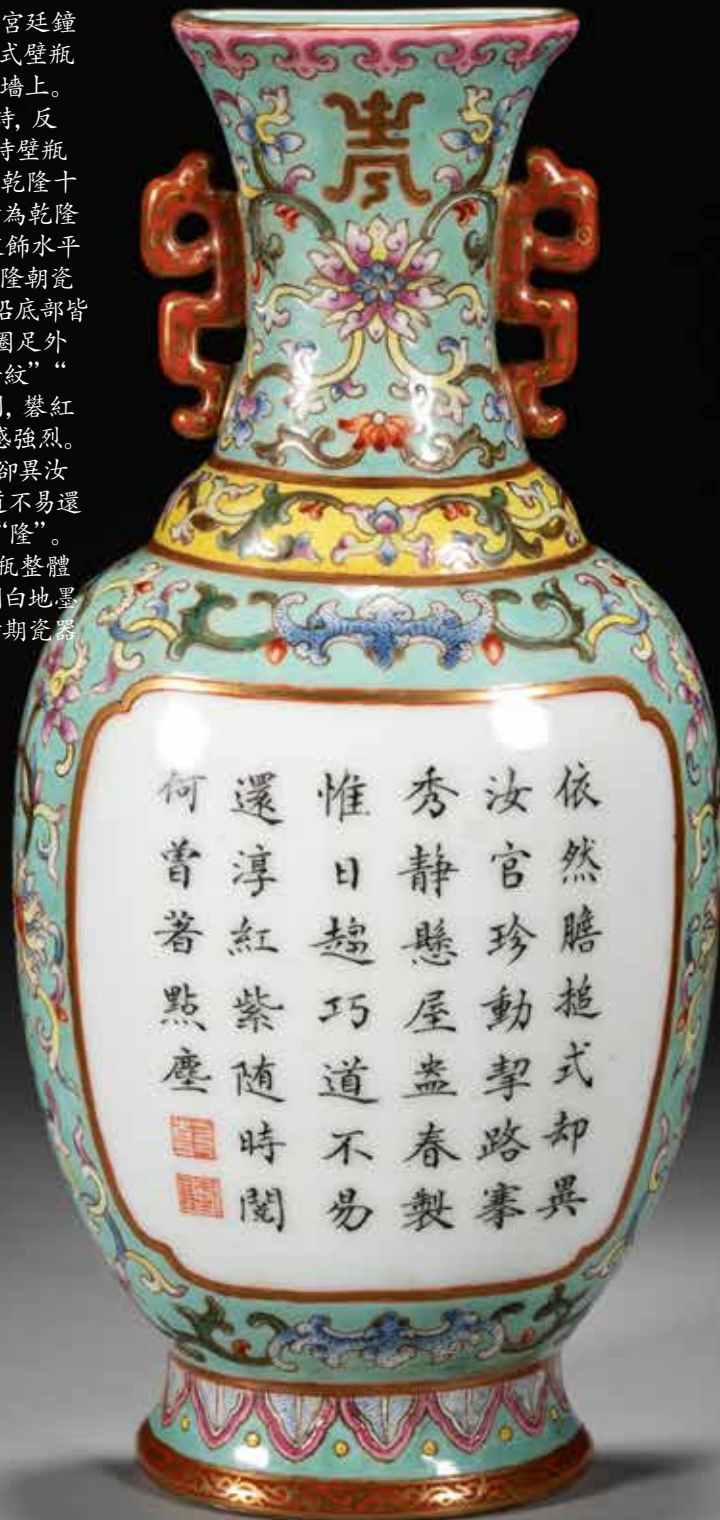 宮廷鐘
式壁瓶
墻上。
詩, 反
詩壁瓶
乾隆十
為乾隆
飾水平
隆朝瓷
沿底部皆
圈足外
紋”“
, 礬紅
感強烈。
卻異汝
道不易還
“隆”。
瓶整體
白地墨
期瓷器
依然膽搥式却異
汝官珍動挈路搴
秀静懸屋盎春製
惟日趨巧道不易
還淳紅紫随時閱
何曾著點塵